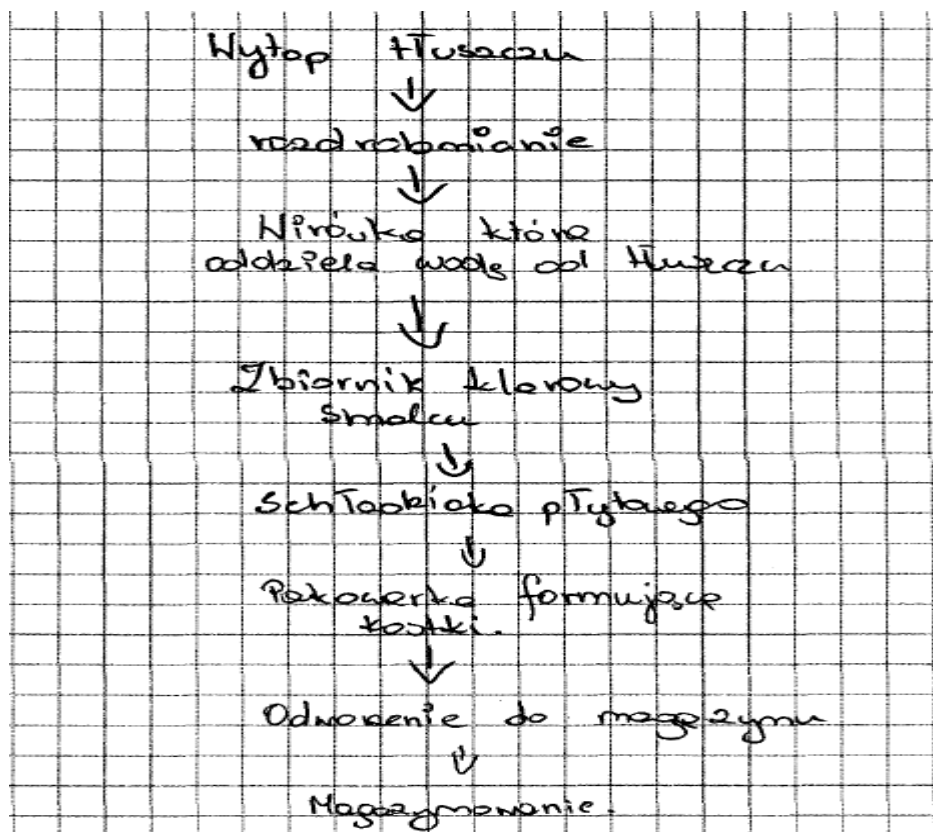 Wytop tłuszczu
rozdrabnianie
Wirówka która
oddziela wodę od tłuszczu
Zbiornik klarowy
smalcu
Schładziaka płytowego
Pakowarka formująca
kostki.
Odwożenie do magazynu
Magazynowanie.